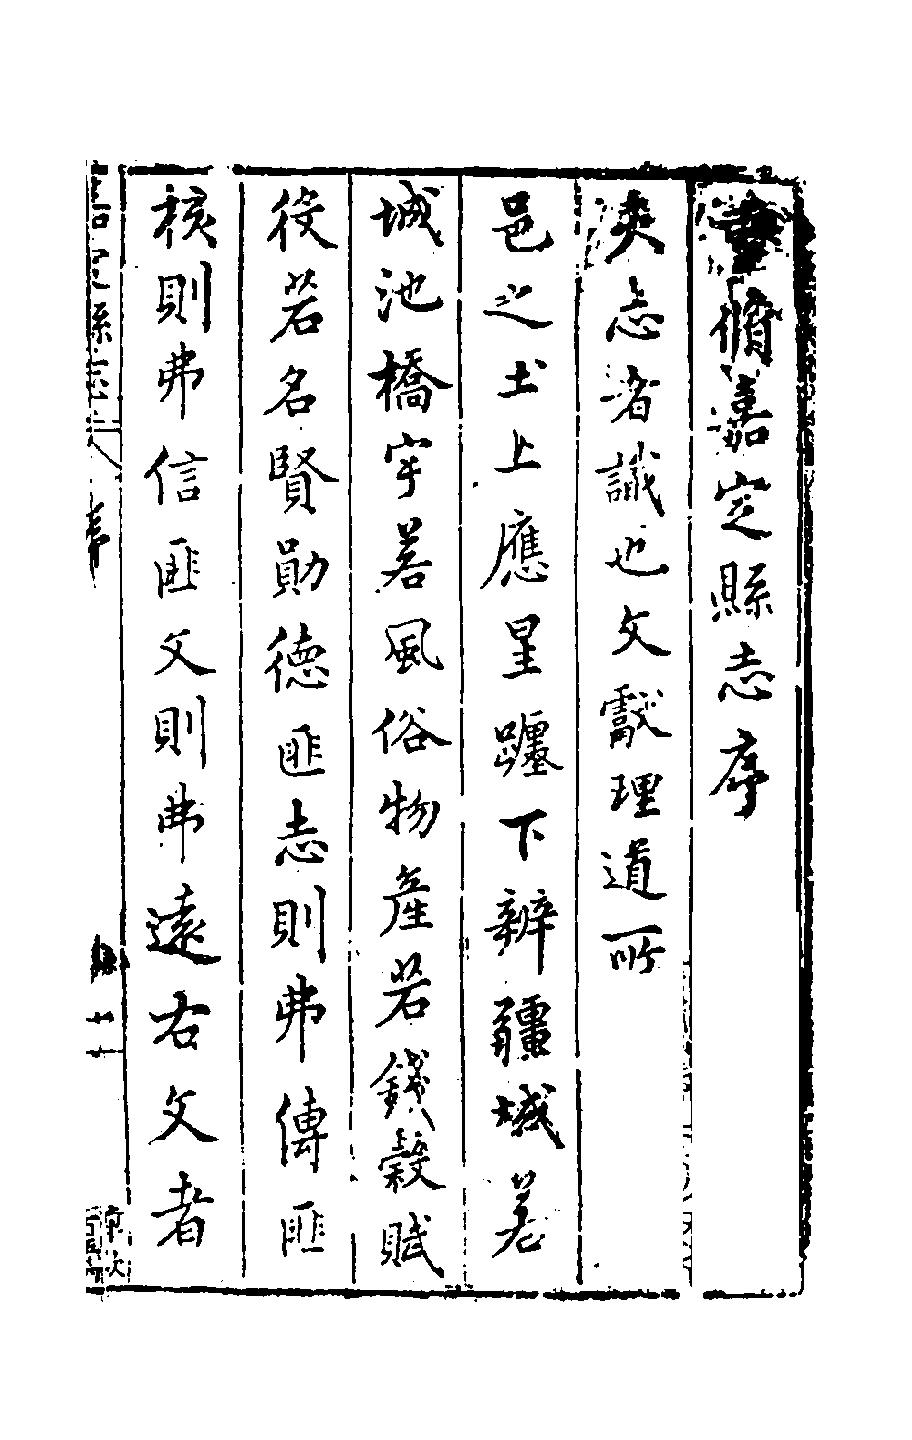 重脩嘉定縣志序
夾志者識也文獻理道所
邑之土上應星躔下辨疆域若
城池橋宇若風俗物產若錢穀賦
役若名賢勛德匪志則弗傳匪
核則弗信匪文則弗遠右文者
嘉定縣志
序